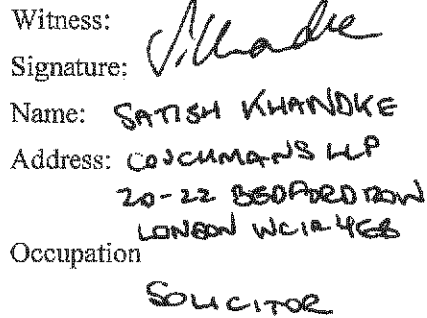 Witness:
Signature: S. Khandke
Name: SATISH KHANDKE
Address: COUCHMANS LLP
20-22 BEDFORD ROW
LONDON WC1R 4EB
Occupation
SOLICITOR